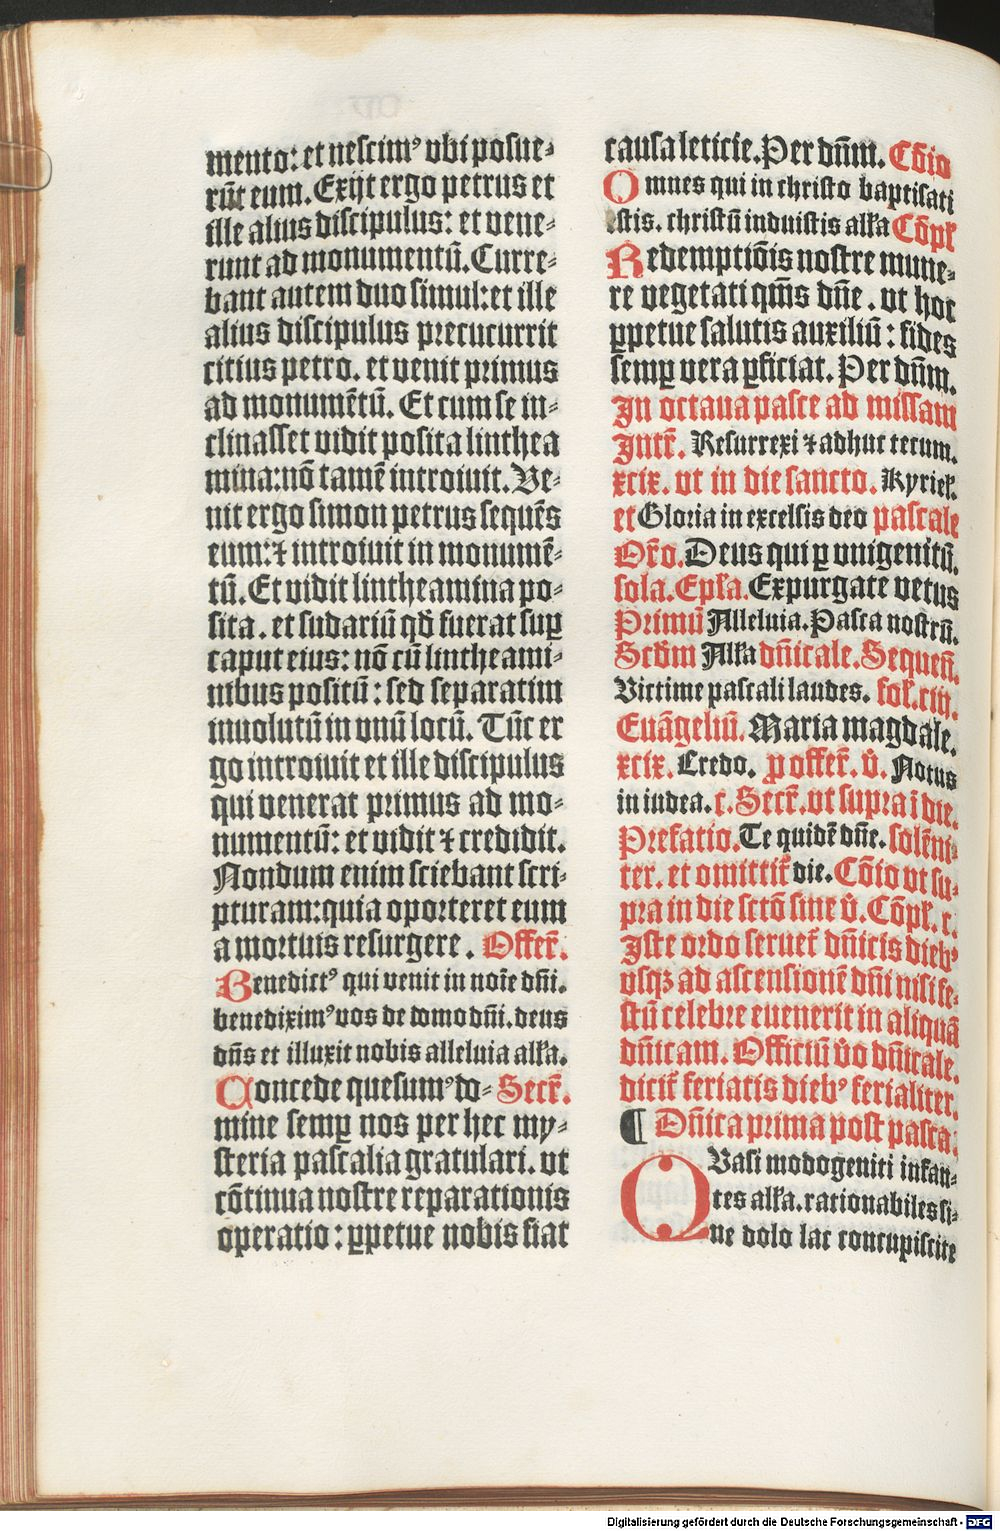 mento: et nescimꝰ vbi posue⸗
rūt eum. Exijt ergo petrus et
ille alius discipulus: et vene⸗
runt ad monumentū. Curre⸗
bant autem duo simul: et ille
alius discipulus precucurrit
citius petro. et venit primus
ad monumētū. Et cum se in⸗
clinasset vidit posita linthea
mina: nō tamē introiuit. Ve⸗
nit ergo simon petrus sequēs
eum: ⁊ introiuit in monumē⸗
tū. Et vidit lintheamina po⸗
sita. et sudariū qd̄ fuerat suꝑ
caput eius: nō cū lintheami⸗
nibus positū: sed separatim
inuolutū in vnū locū. Tūc er
go introiuit et ille discipulus
qui venerat primus ad mo⸗
numentū: et vidit ⁊ credidit.
Nondum enim sciebant scri⸗
pturam: quia oporteret eum
a mortuis resurgere. Offer̄.
Benedictꝰ qui venit in noīe dn̄i.
benediximꝰ vos de domo dn̄i. deus
dn̄s et illuxit nobis alleluia alľa.
Concede quesumꝰ do⸗ Secr̄.
mine semꝑ nos per hec my⸗
steria pascalia gratulari. vt
cōtinua nostre reparationis
operatio: ꝑpetue nobis fiat
causa leticie. Per dn̄m. Cōio
Omnes qui in christo baptisati
estis. christū induistis alľa Cōpľ
Redemptiōis nostre mune⸗
re vegetati qm̄s dn̄e. vt hoc
ꝑpetue salutis auxiliū: fides
semꝑ vera ꝓficiat. Per dn̄m.
In octaua pasce ad missam
Intr̄. Resurrexi ⁊ adhuc tecum.
xcix. vt in die sancto. Kyrieľ.
et Gloria in excelsis deo pascale
Or̄o. Deus qui ꝑ vnigenitū.
sola. Epľa. Expurgate vetus
Primū Alleluia. Pasca nostrū.
Scd̄m Alľa dn̄icale. Sequen̄.
Victime pascali laudes. foľ. ciij.
Euāgeliū. Maria magdale.
xcix. Credo. ꝓ offer̄. v̄. Notus
in iudea. c. Secr̄. vt supra ī die.
Prefatio. Te quidē dn̄e. solēni⸗
ter. et omittit̄ die. Cōio vt su⸗
pra in die sctō sine v̄. Cōpľ. c.
Iste ordo seruet̄ dn̄icis diebꝰ
vsqꝫ ad ascensionē dn̄i nisi fe⸗
stū celebre euenerit in aliquā
dn̄icam. Officiū v̄o dn̄icale.
dicit̄ feriatis diebꝰ ferialiter.
¶ Dn̄ica prima post pasca.
QVasi modogeniti infan⸗
tes alľa. rationabiles si⸗
ne dolo lac concupiscite
Digitalisierung gefördert durch die Deutsche Forschungsgemeinschaft - DFG